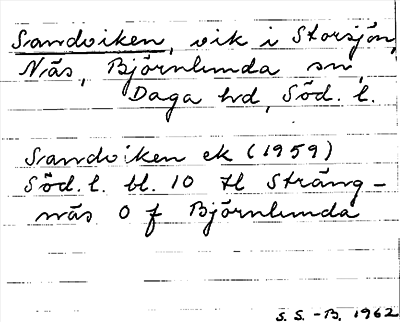 Sandviken, vik i Storsjön,
Näs, Björnlunda sn,
Daga hd, Söd. l.
Sandviken ek (1959)
Söd. l. bl. 10 tl Sträng-
näs O f Björnlunda
S. S. -B. 1962